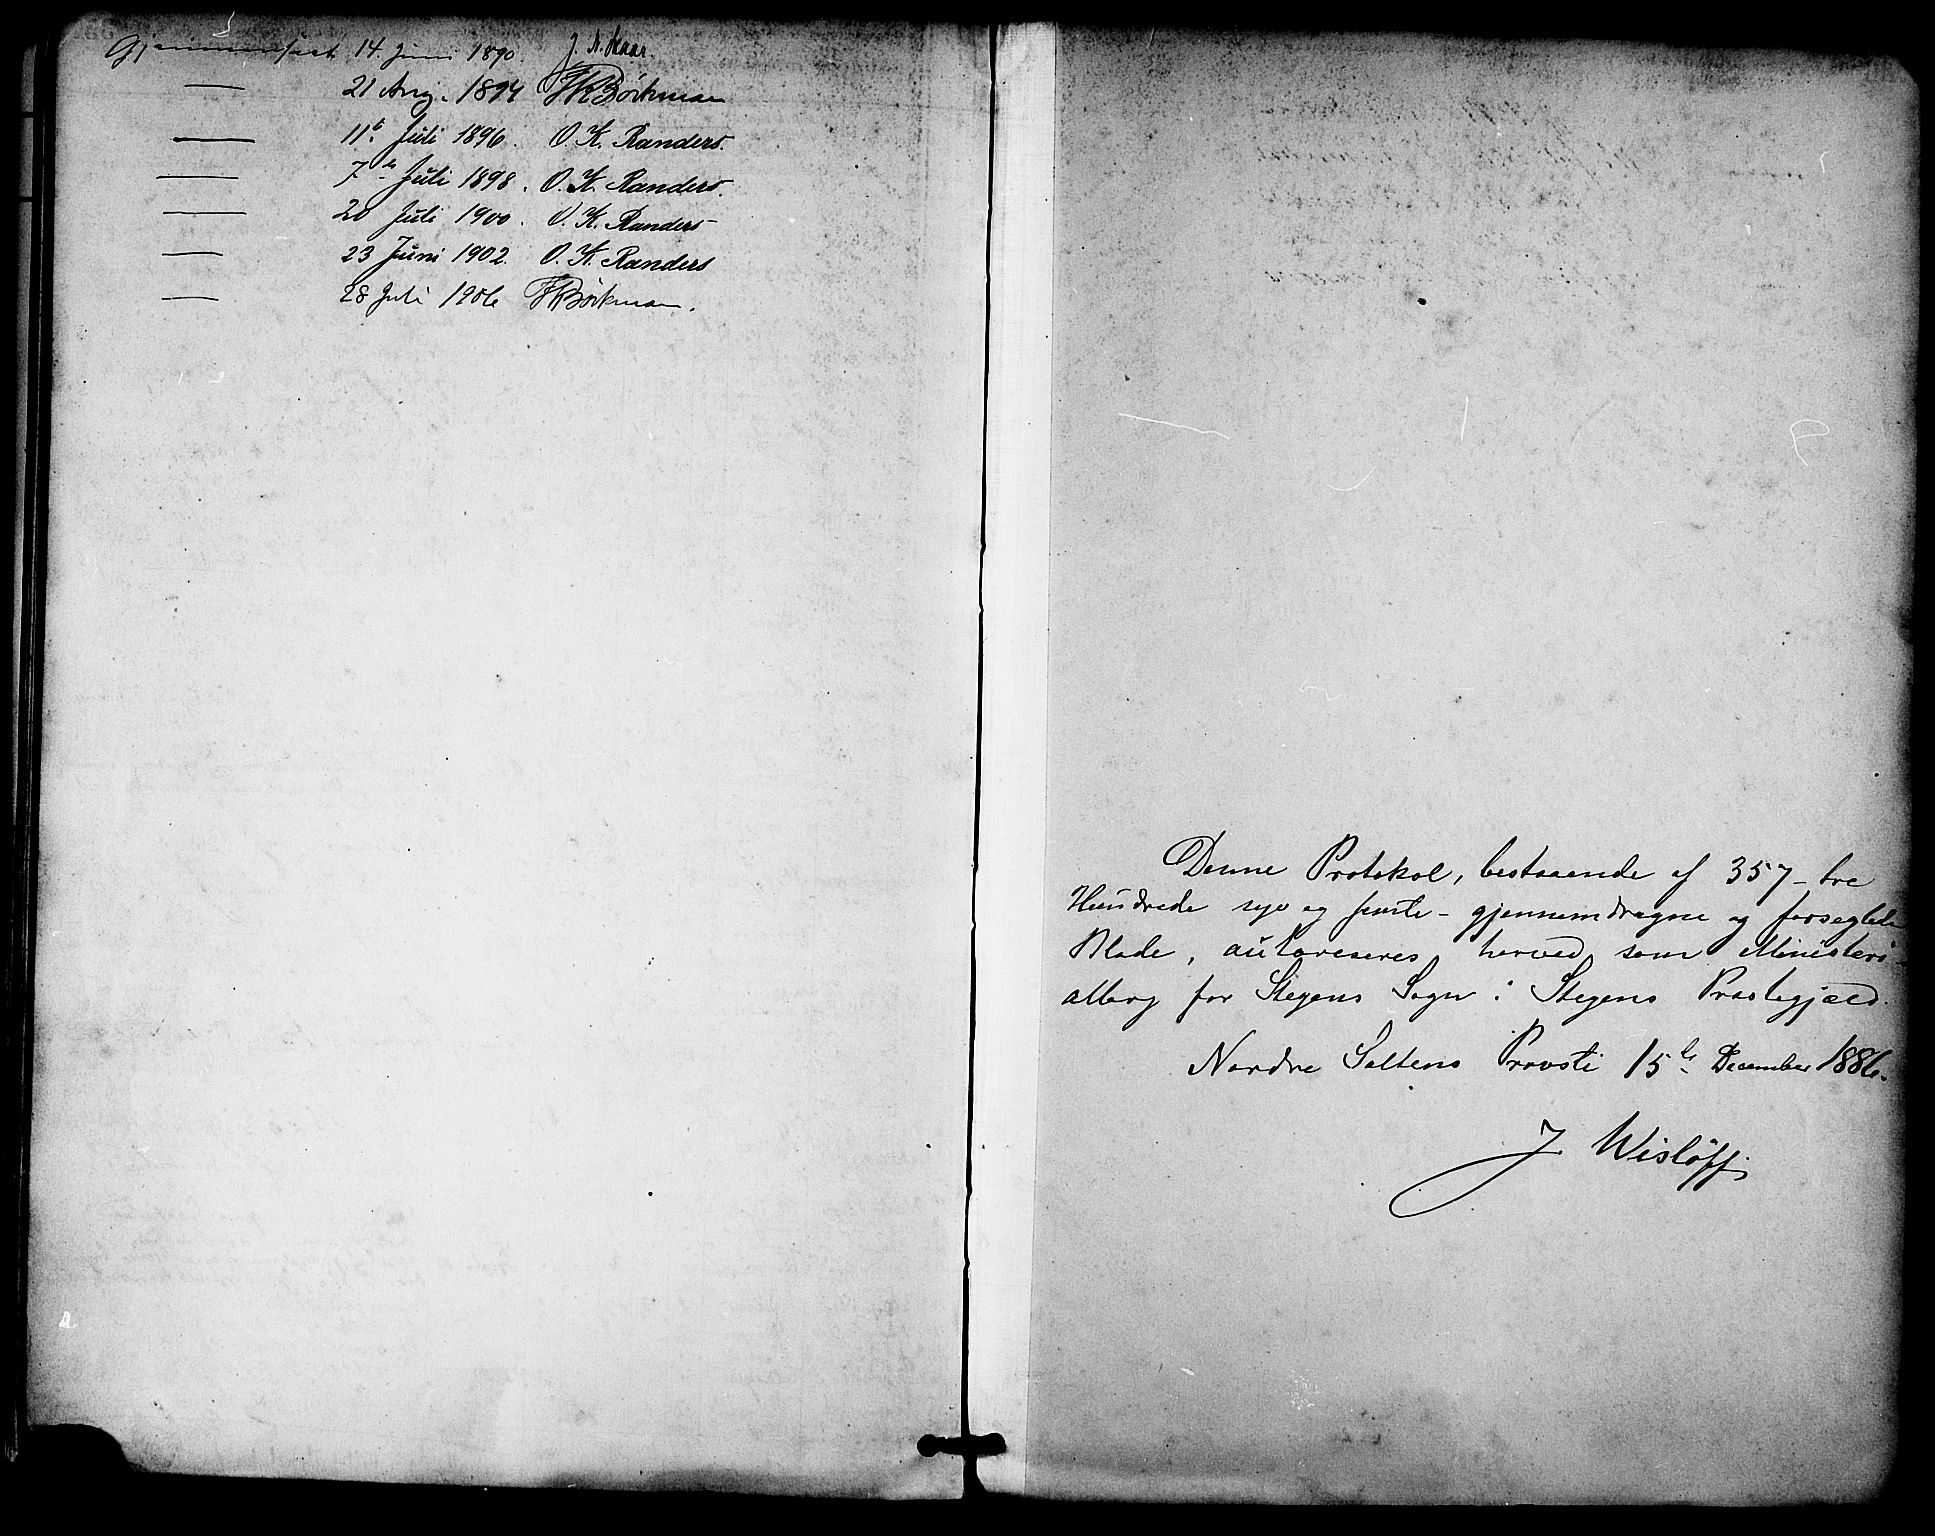 Gjennemseet 14 Juni 1890. J. N. Skaar.
— 21 Aug. 1894 Börkman
— 11te Juli 1896. O. K. Randers.
— 7de Juli 1898. O. K. Randers.
— 20 Juli 1900. O. K. Randers
— 23 Juni 1902. O. K. Randers
— 28 Juli 1906 Börkman.
Denne Protokol, bestaaende af 357 - tre
Hundrede syv og femti - gjennemdragne og forseglede
Blade, autoriseres herved som Ministeri-
albog for Stegens Sogn i Stegens Præstegjæld.
Nordre Saltens Provsti 15de December 1886.
J Wislöff